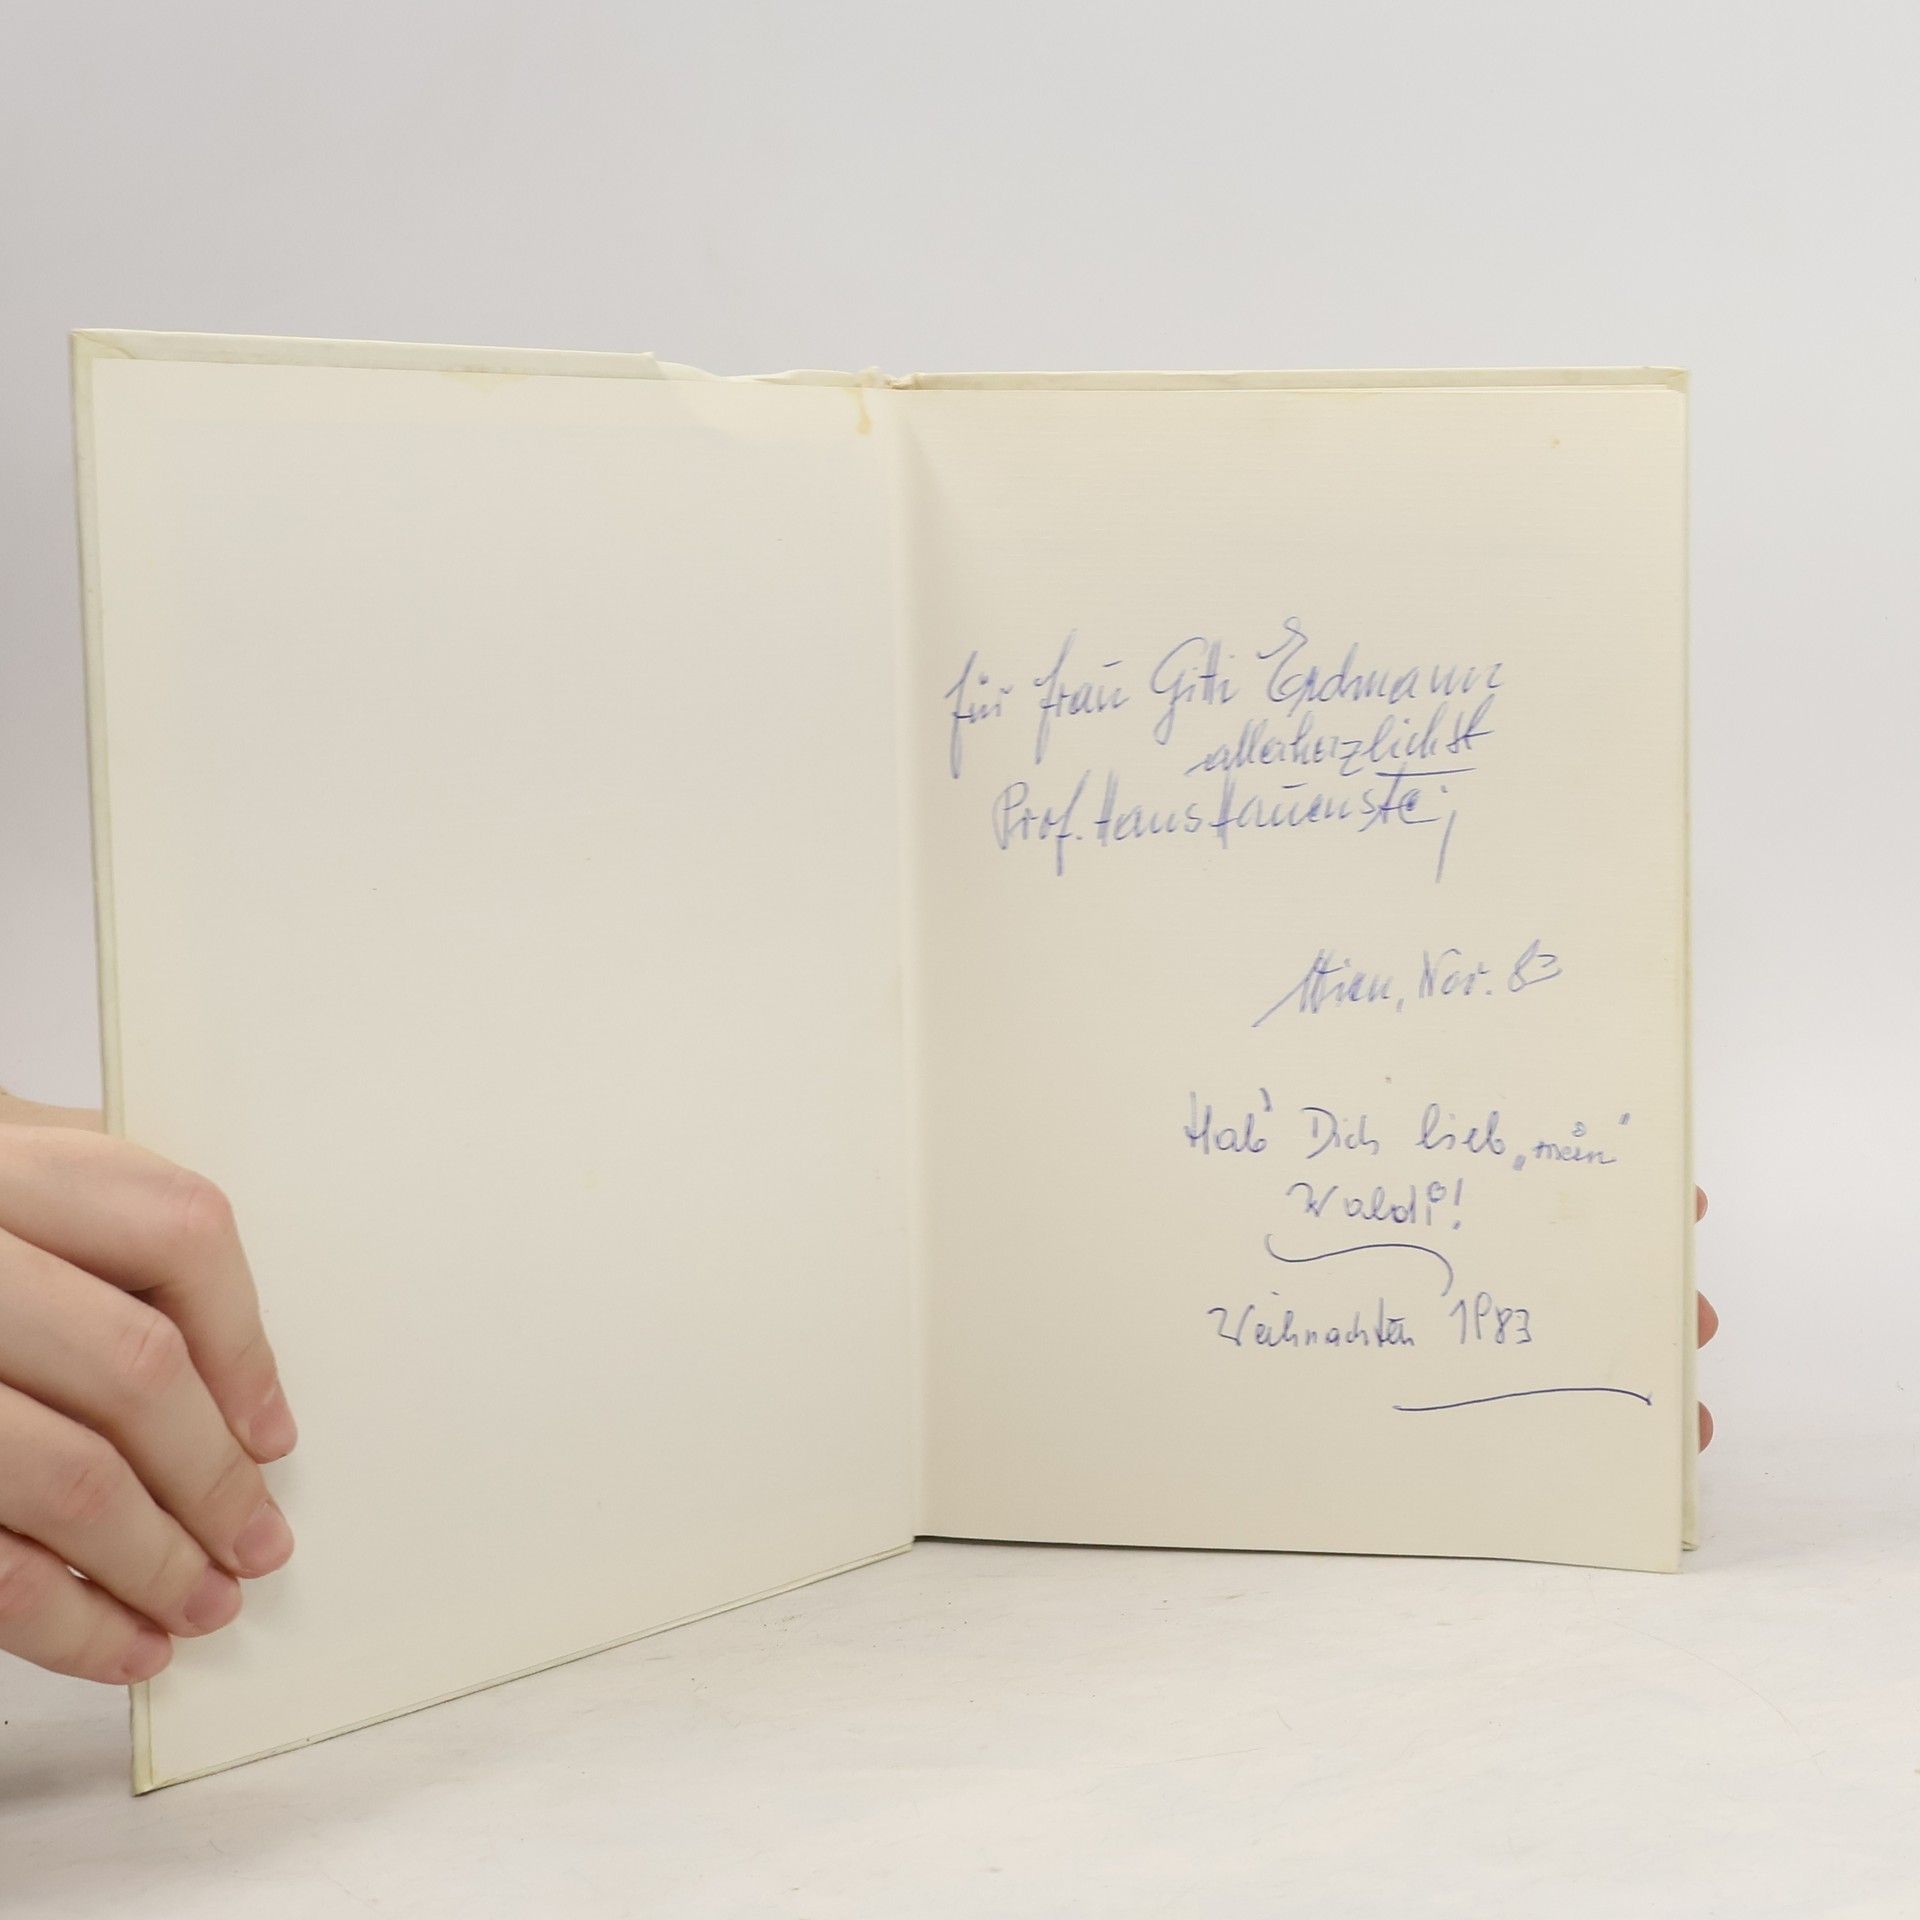 für Frau Gitti Erdmann
allerherzlichst
Prof. Hans Hauenstein
Wien, Nov. 83
Hab' Dich lieb „mein"
Waldi!
Weihnachten 1983